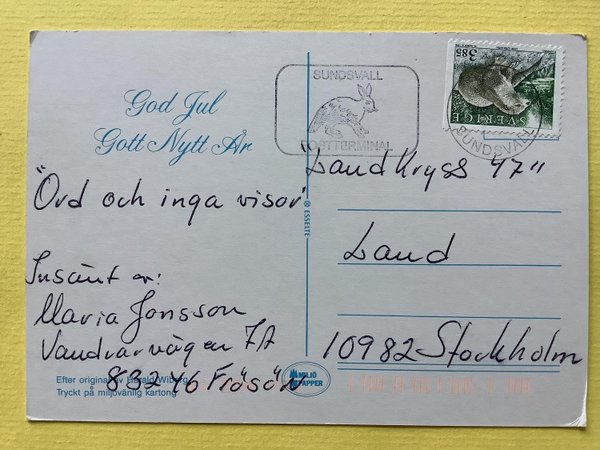 God Jul
Gott Nytt År
"Ord och inga visor"
Insänt av:
Maria Jonsson
Vandrarvägen 7A
832 46 Frösön
Efter original av Harald Wiberg
Tryckt på miljövänlig kartong
MILJÖ
PAPPER
© ESSELTE
SUNDSVALL
POSTTERMINAL
SUNDSVALL
SVERIGE
3.85
"Land Kryss 47"
Land
10982 Stockholm